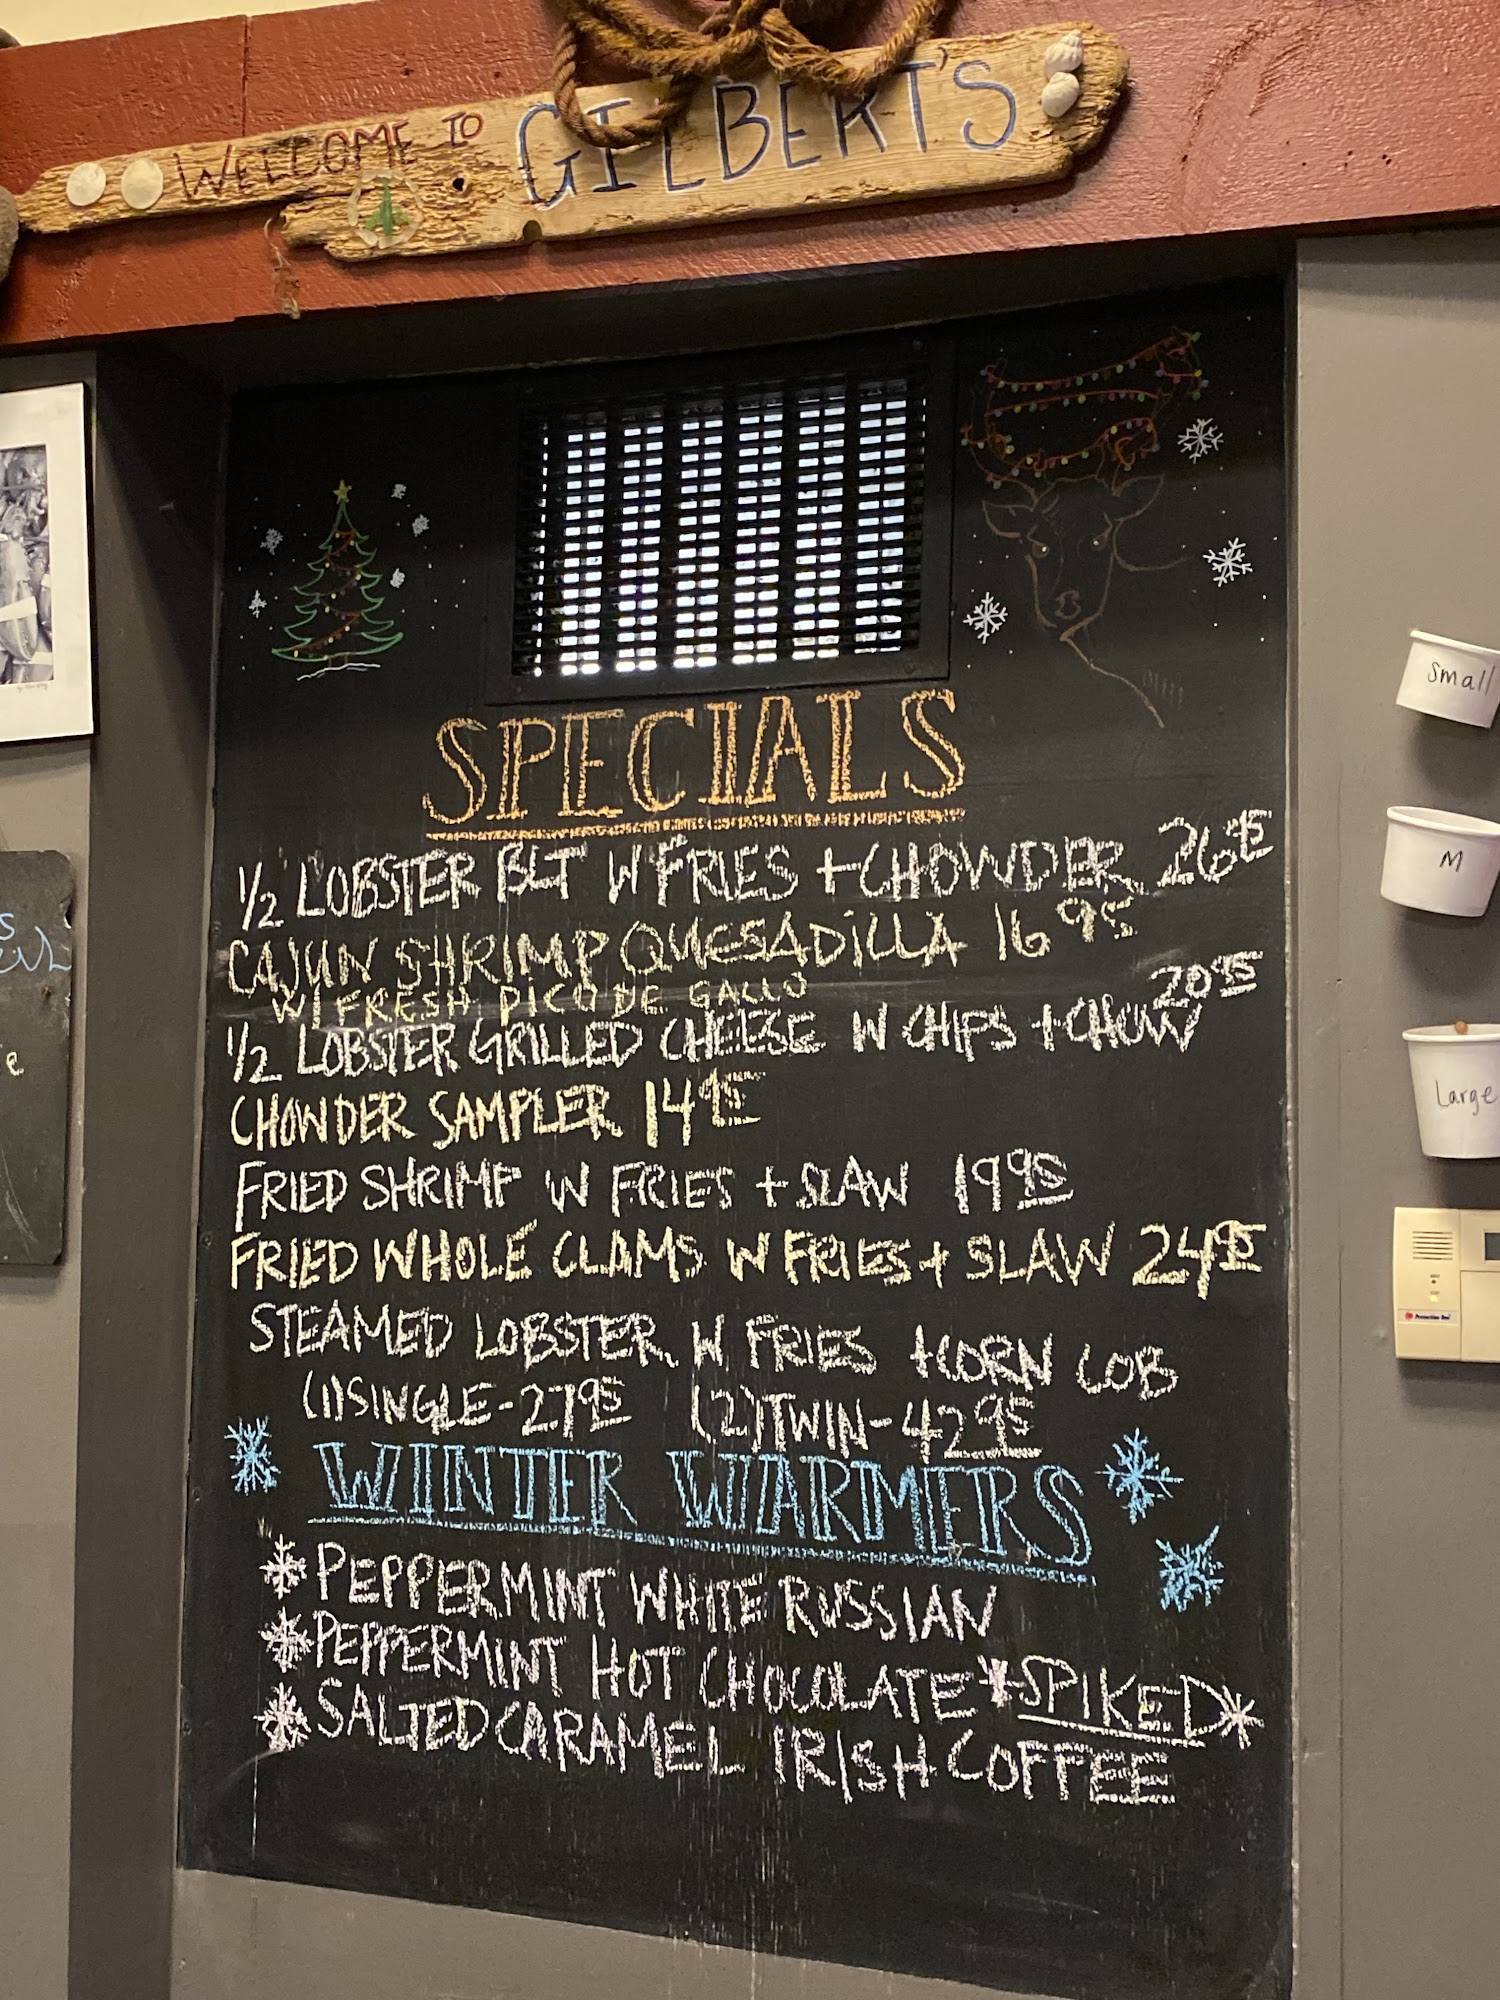 WELCOME TO GILBERT'S
SPECIALS
1/2 LOBSTER BLT W FRIES + CHOWDER 26 95
CAJUN SHRIMP QUESADILLA 16 95
W/ FRESH PICO DE GALLO
20 95
1/2 LOBSTER GRILLED CHEESE W CHIPS + CHOW
CHOWDER SAMPLER 14 95
FRIED SHRIMP W FRIES + SLAW 19 95
FRIED WHOLE CLAMS W FRIES + SLAW 24 95
STEAMED LOBSTER W FRIES + CORN COB
(1) SINGLE - 27 95 (2) TWIN - 42 95
WINTER WARMERS
PEPPERMINT WHITE RUSSIAN
PEPPERMINT HOT CHOCOLATE * SPIKED *
SALTED CARAMEL IRISH COFFEE
Small
M
Large